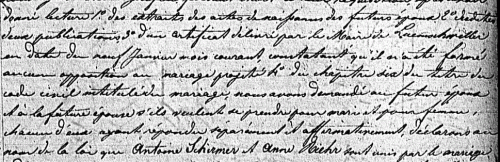 donné lecture 1° des extraits des actes de naissance des futurs époux 2° des dites
deux publications 3° d'un certificat délivré par le Maire de
en date du neuf Janvier mois courant, constatant qu'il n'a été formé
aucune opposition au mariage projeté 4° du chapitre six du titre du
code civil intitulé du mariage, nous avons demandé au futur époux
et à la future épouse s'ils veulent se prendre pour mari et pour femme,
chacun d'eux ayant répondu séparément et affirmativement, déclarons au
nom de la loi que Antoine Schirmer et Anne sont unis par le mariage